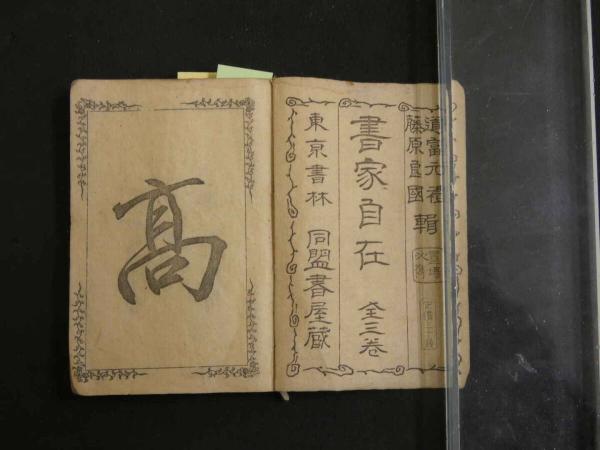 道富元禮
藤原良國 輯
書家自在 全三卷
東京書林 同盟書屋藏
高